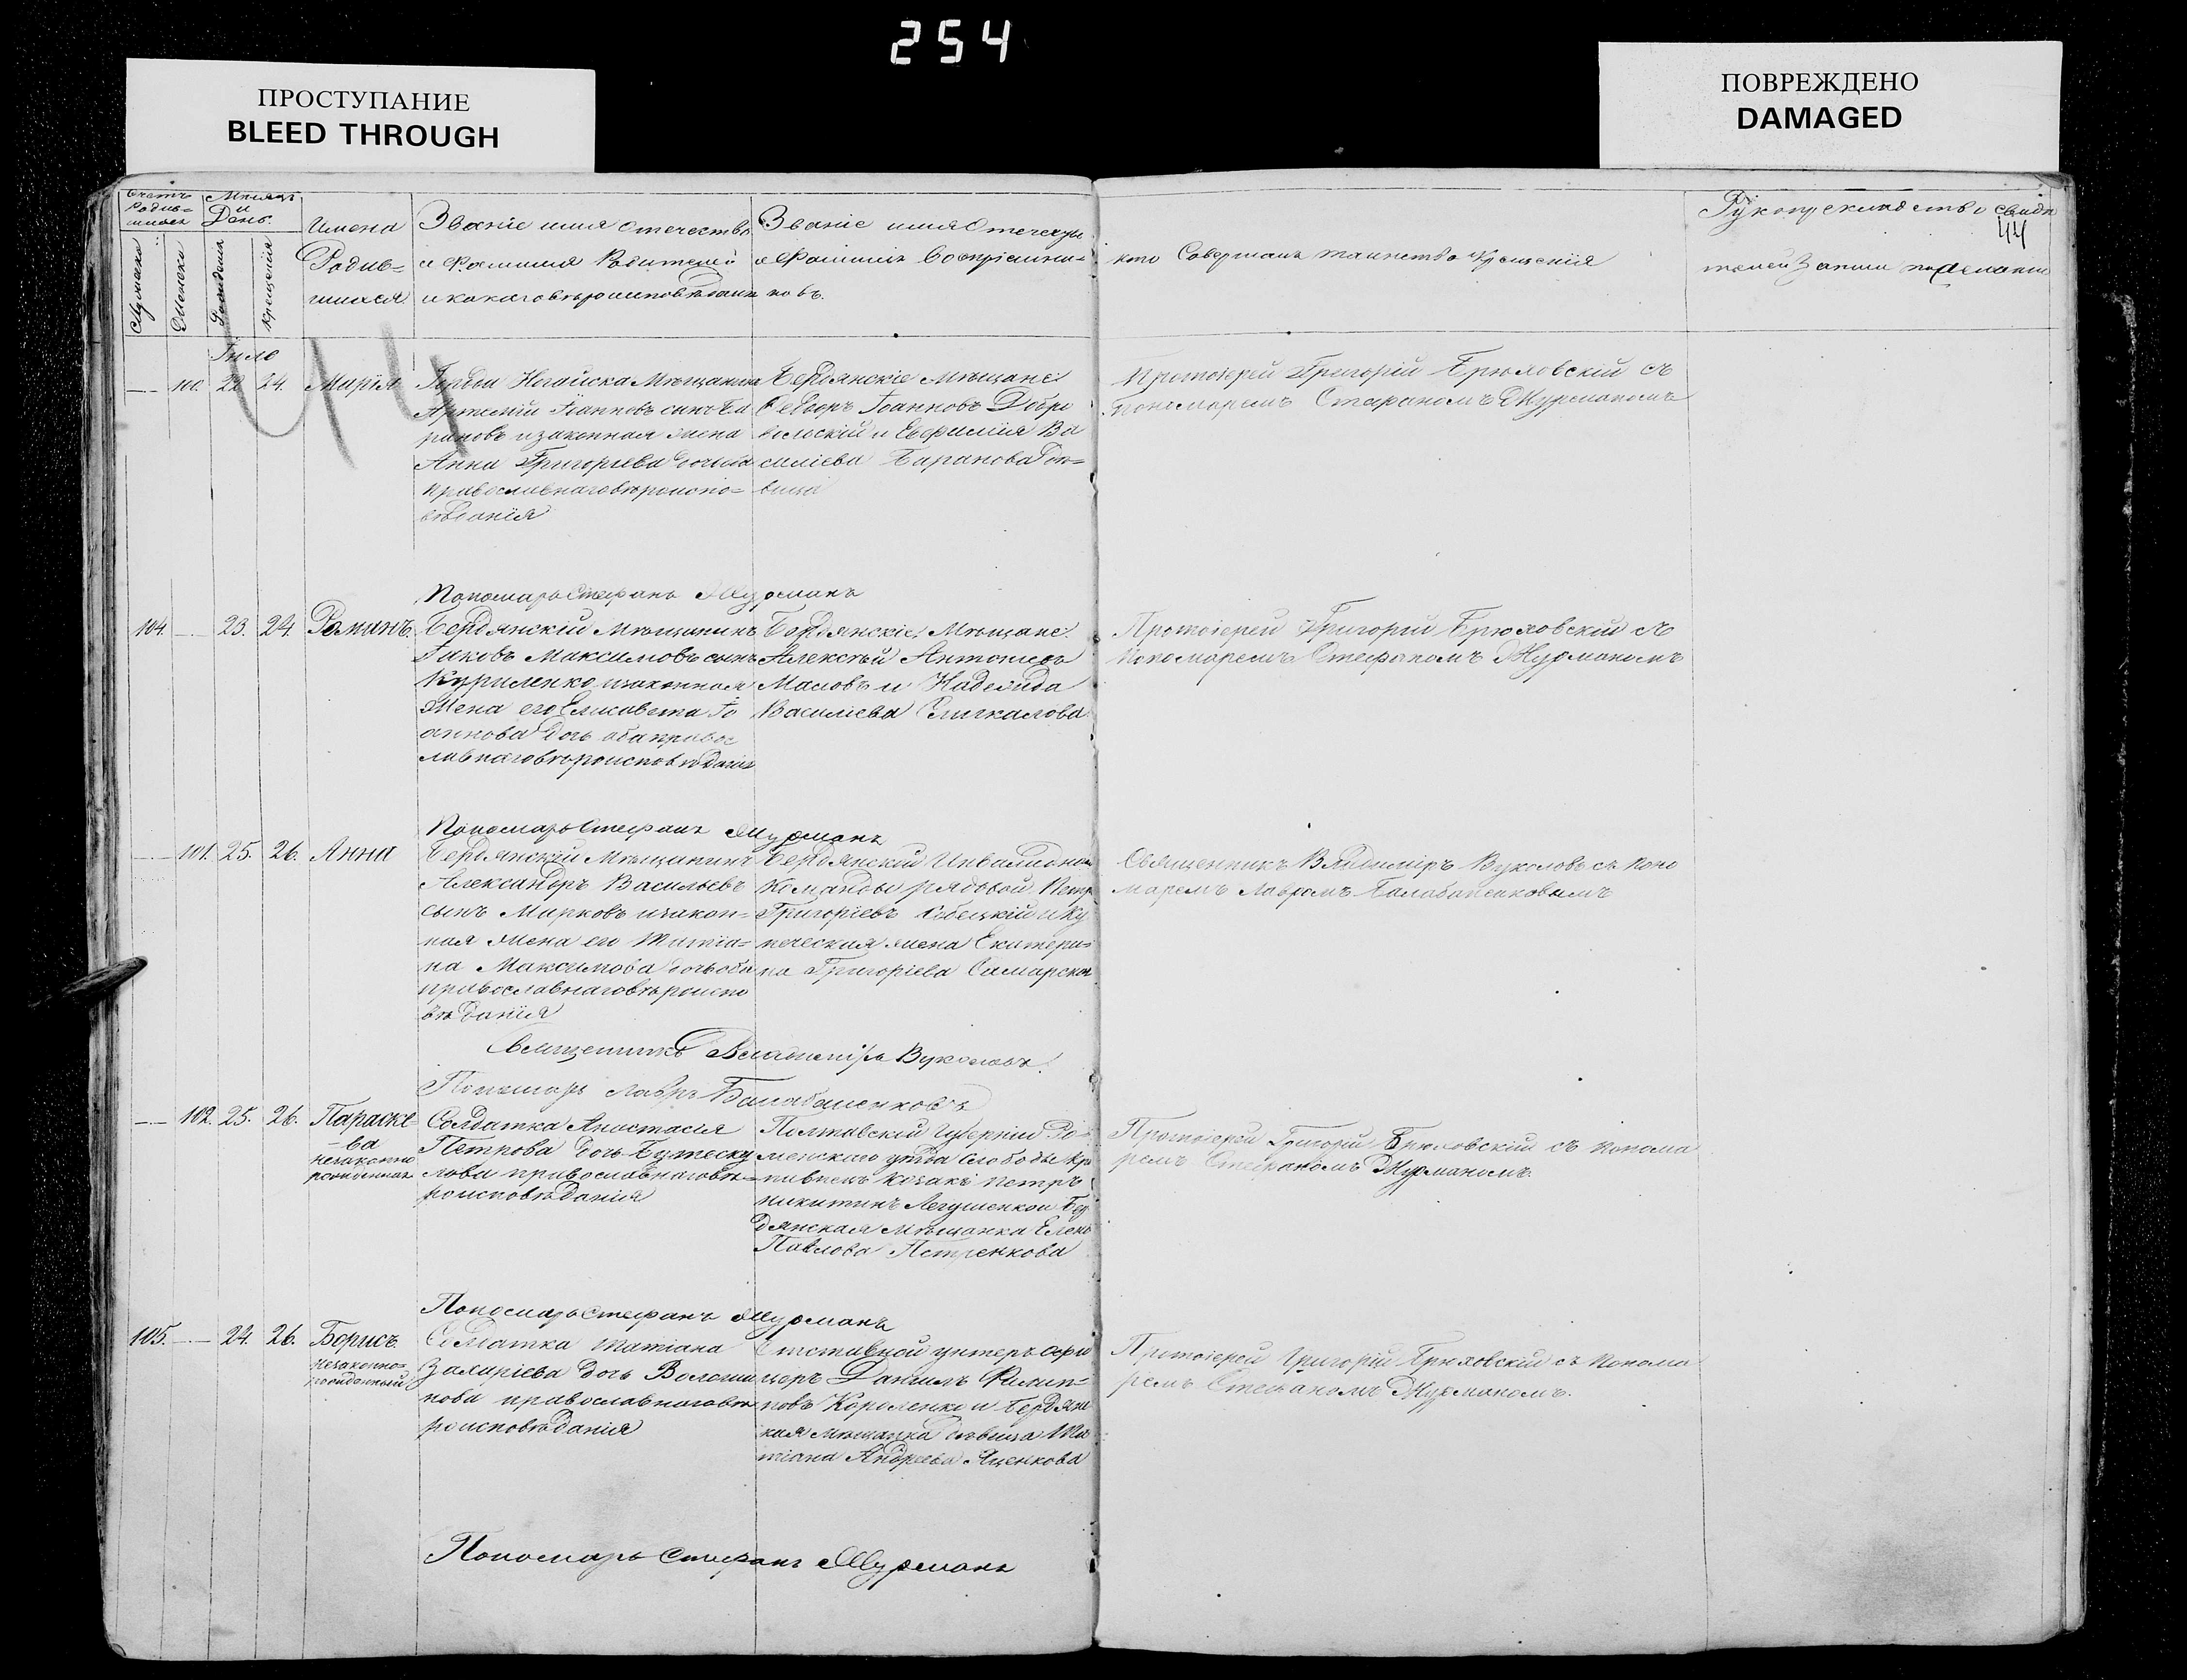 254
ПРОСТУПАНИЕ
BLEED THROUGH
ПОВРЕЖДЕНО
DAMAGED
Счетъ
Родив=
шихся
Мѣсяцъ
и
День.
Мужеска
Женска
Рожденія
Крещенія
Имена
Родив=
шихся.
Званіе имя отечество
и Фамилія Родителей
и какого вѣроисповѣданія
Званіе имя Отечество
и Фамилія Воспріемни=
ковъ.
кто Совершалъ таинство Крещенія
Рукоприкладство свидѣ
телей Записи по желанію
44
44
Іюль
100. 22 24. Марія
Города Ногайска Мѣщанинъ
Артемій Іоанновъ сынъ Ба
рановъ и законная жена
Анна Григорьева
православнаго вѣроиспо=
вѣданія
Бердянскіе мѣщане
Ѳеодоръ Іоанновъ Добро
вольскій и Евфимія Ва
силіева Баранова дѣ=
вица
Протоіерей Григорій Брюховскій съ
пономаремъ Стефаномъ Журманомъ
Пономарь Стефанъ Журманъ
104. 23. 24. Романъ.
Бердянскій мѣщанинъ
Іаковъ Максимовъ сынъ
Куриленко и законная
Жена его Елисавета Іо
аннова дочь оба правос
лавнаго вѣроисповѣданія
Бердянскіе Мѣщане
Алексѣй Антоніевъ
Масовъ и Надежда
Василіева
Протоіерей Григорій Брюховскій съ
пономаремъ Стефаномъ Журманомъ
Пономарь Стефанъ Журманъ
101. 25. 26. Анна
Бердянскій Мѣщанинъ
Александръ Васильевъ
сынъ Марковъ и закон=
ная жена его Татіа=
на Максимова дочь оба
православнаго вѣроиспо
вѣданія
Бердянской Инвалидной
Команды рядовой Петръ
Григоріевъ и Ку
печеская жена Екатери=
на Григоріева Самарская
Священникъ Владиміръ Вуколовъ съ поно
маремъ Лавромъ Балабаненковымъ
Священникъ Владиміръ Вуколовъ.
Пономарь Лавръ Балабаненковъ
102. 25. 26. Параске=
=ва
незаконно
рожденная
Солдатка Анастасія
Петрова дочь
православнаго вѣ=
роисповѣданія
Полтавской Губерніи Ро=
менскаго уѣзда Слободы
козакъ Петръ
Никитинъ и Бер
дянская мѣщанка Елена
Павлова Петренкова
Протоіерей Григорій Брюховскій съ понома
ремъ Стефаномъ Журманомъ.
Пономарь Стефанъ Журманъ
105. 24. 26. Борисъ.
незаконно=
рожденный
Солдатка Татіана
Захаріева дочь Волоши
нова православнаго вѣ
роисповѣданія
Отставной унтеръ офи
церъ Даніилъ Филип=
повъ Короленко и Бердянс
кая мѣщанка дѣвица Та
тіана Андреева Яценкова
Протоіерей Григорій Брюховскій съ понома
ремъ Стефаномъ Журманомъ.
Пономарь Стефанъ Журманъ